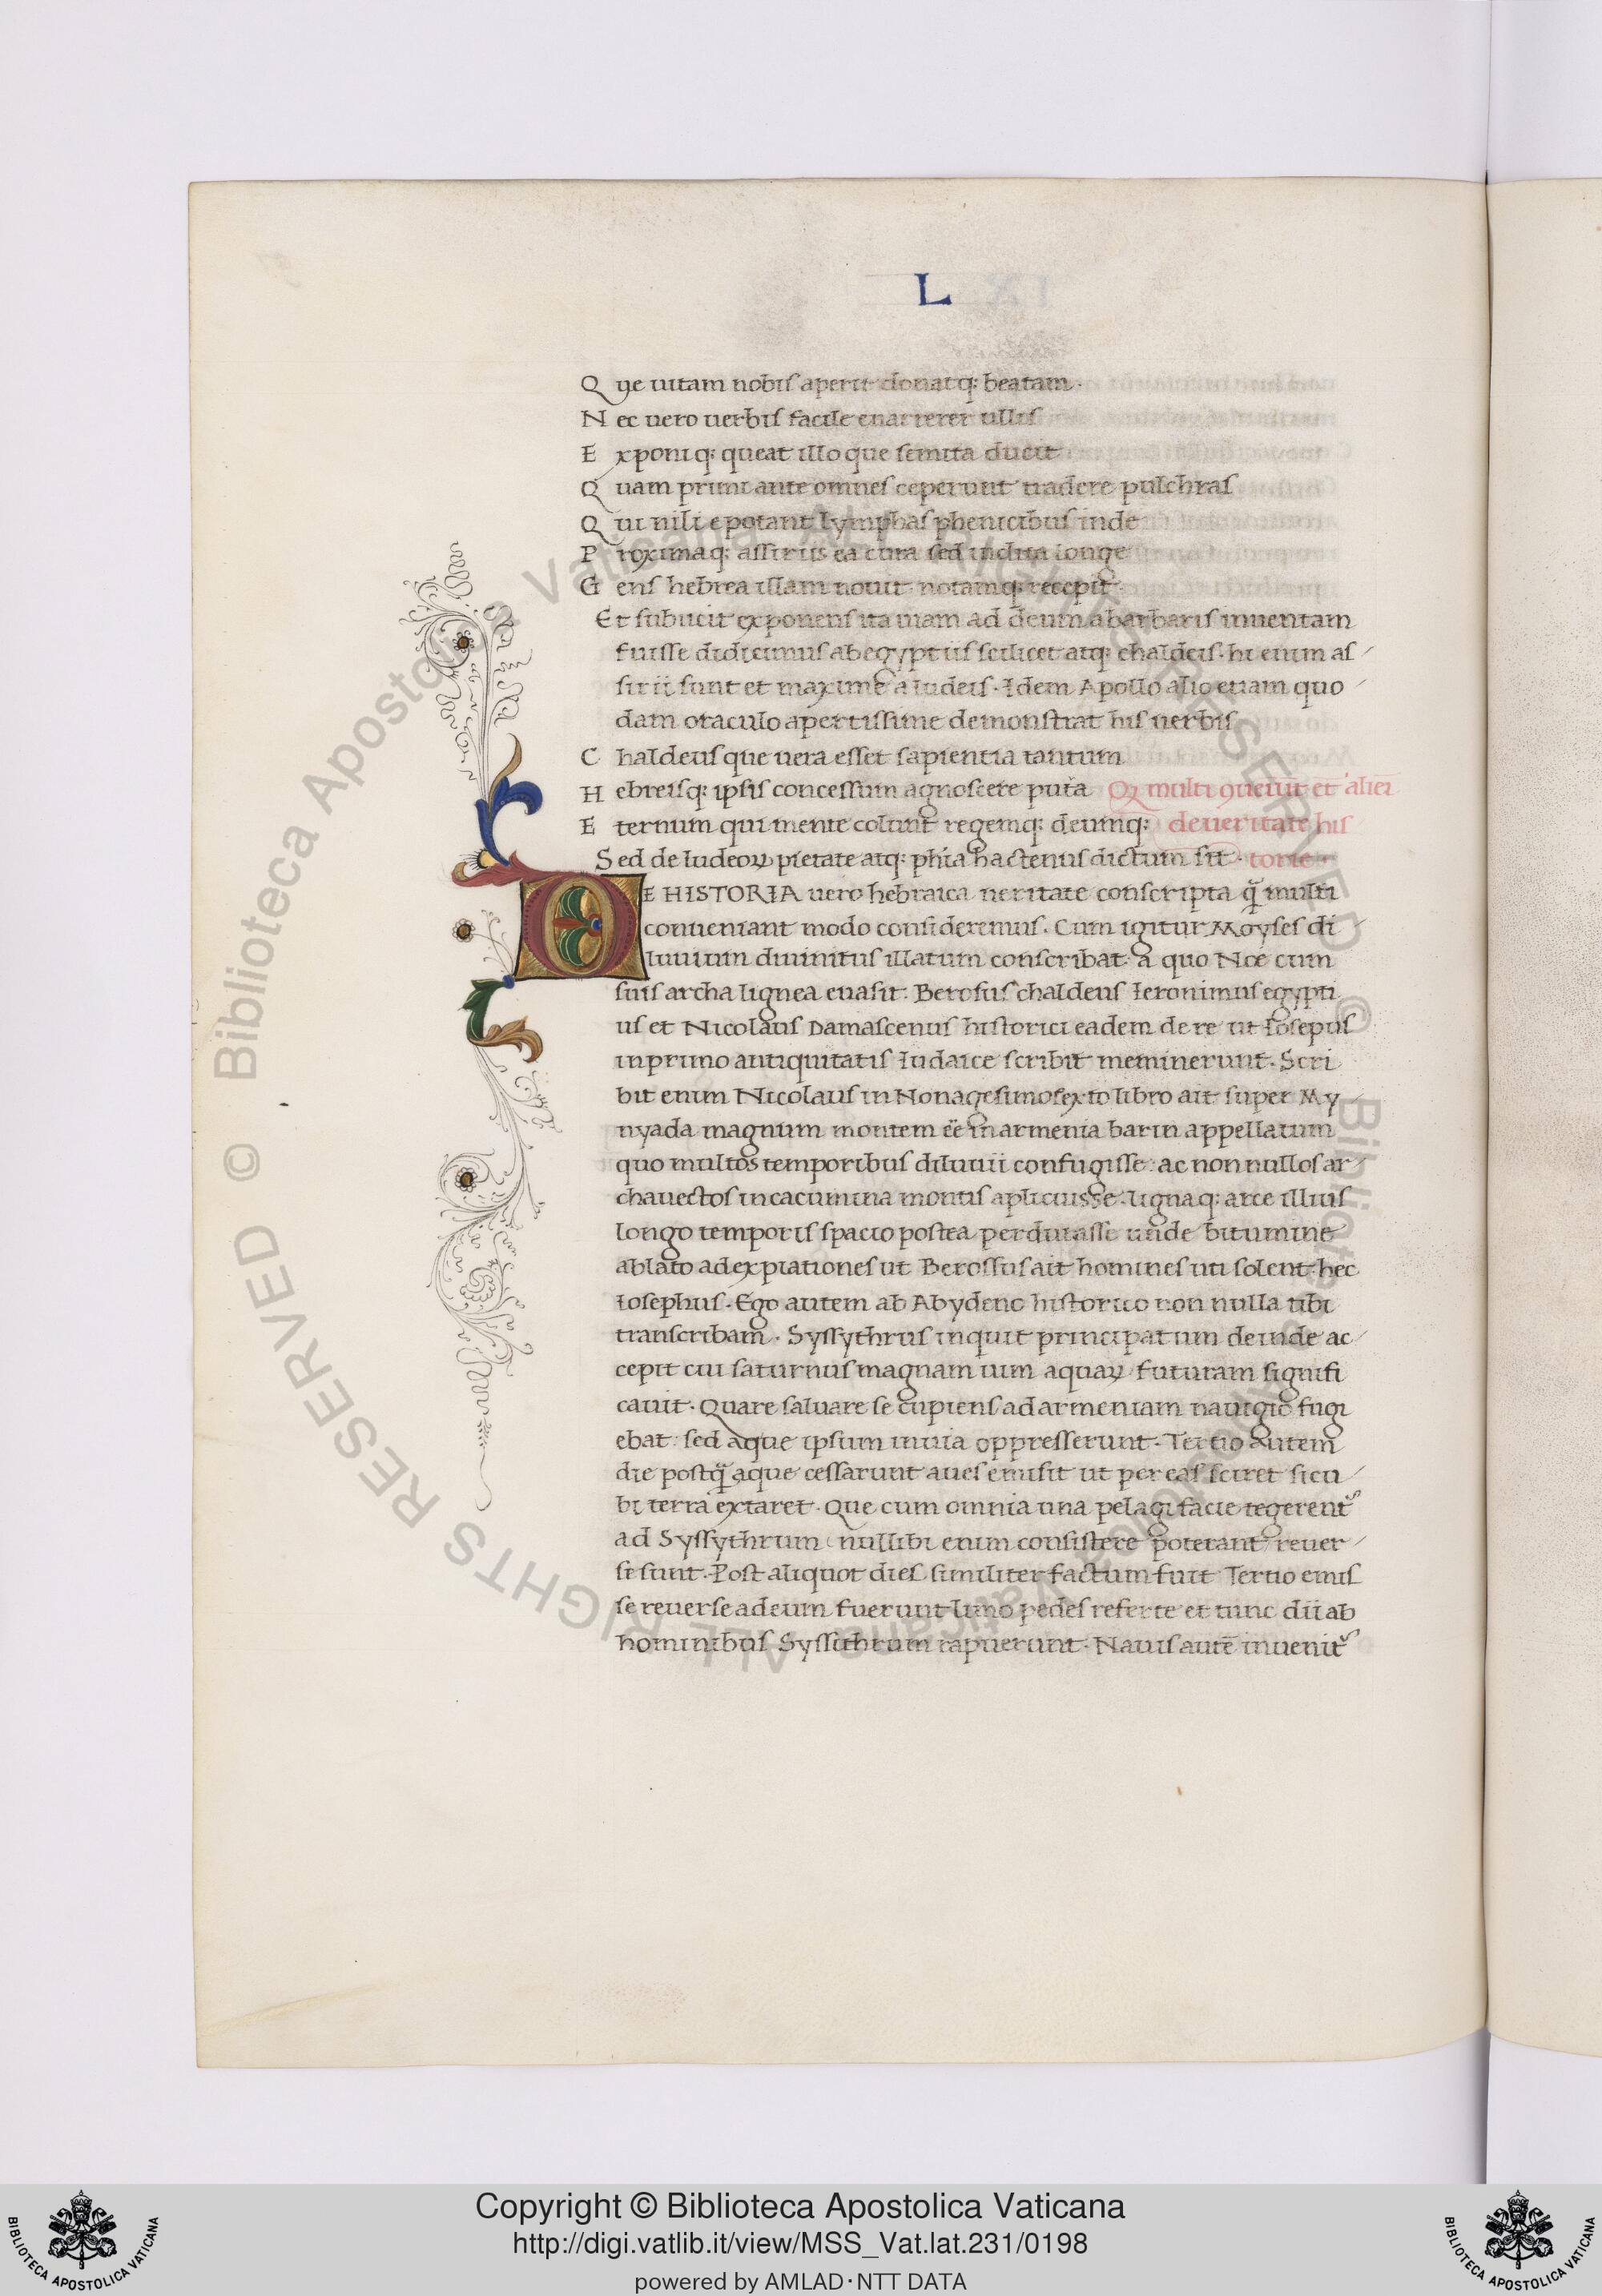 L
Que uitam nobis aperit donatq: beatam.
Nec uero uerbis facile enarrerer ullis
Exponiq: queat illo que semita ducit
Quam primi ante omnes ceperunt uadere pulchras
Qui nili epotant lymphas phenicibus inde
Proximaq: assiriis ea cura sed indita longe
Gens hebrea illam nouit notamq: recepit.
Et subiicit exponens ita uiam ad deum a barbaris inuentam
fuisse didicimus ab egyptiis scilicet atq: chaldeis. hi enim as
sirii sunt et maxime a Iudeis. Idem Apollo alio etiam quo
dam oraculo apertissime demonstrat his uerbis
Chaldeus que uera esset sapientia tantum
Hebreisq: ipsis concessum agnoscere pura Qꝫ multi ꝯueiūt et aliei
Eternum qui mente colunt regemq: deumq: de ueritate his
Sed de Iudeoꝝ pietate atq: phīa hactenus dictum sit. torie.
DE HISTORIA uero hebraica ueritate conscripta q̄ multi
conueniant modo consideremus. Cum igitur Moyses di
luuium diuinitus illatum conscribat: a quo Noe cum
suis archa lignea euasit. Berosus chaldeus Ieronimus egypti
us et Nicolaus Damascenus historici eadem de re ut Iosepus
in primo antiquitatis Iudaice scribit meminerunt. Scri
bit enim Nicolaus in Nonagesimosexto libro ait super My
nyada magnum montem eē in armenia barin appellatum
quo multos temporibus diluuii confugisse: ac non nullos ar
cha uectos in cacumina montis apliciusse. lignaq: arce illius
longo temporis spacio postea perdurasse unde bitumine
ablato ad expiationes ut Berossus ait homines uti solent. hec
Iosephus. Ego autem ab Abydeno historico non nulla tibi
transcribam. Syssythrus inquit principatum deinde ac
cepit cui saturnus magnam uim aquaꝝ futuram signifi
cauit. Quare saluare se cupiens ad armeniam nauigio fugi
ebat: sed aque ipsum in uia oppresserunt. Tertio autem
die postq̄ aque cessarunt aues emisit ut per eas sciret sicu
bi terra extaret. Que cum omnia una pelagi facie tegerent᷑
ad Syssythrum (nullibi enim consistere poterant) reuer
se sunt. Post aliquot dies similiter factum fuit Tertio emis
se reuerse ad eum fuerunt limo pedes referte et tunc dii ab
hominibus Syssithrum rapuerunt. Nauis autē inuenit᷑
Copyright © Biblioteca Apostolica Vaticana
http://digi.vatlib.it/view/MSS_Vat.lat.231/0198
powered by AMLAD·NTT DATA
BIBLIOTECA APOSTOLICA VATICANA
BIBLIOTECA APOSTOLICA VATICANA
© Biblioteca Apostolica Vaticana ALL RIGHTS RESERVED
© Biblioteca Apostolica Vaticana ALL RIGHTS RESERVED